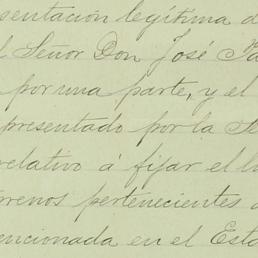 sentación legítima d
l Señor Don José Ta
por una parte, y el
presentado por la Se
relativo á fijar el lu
rrenos pertenecientes a
encionada en el Esta